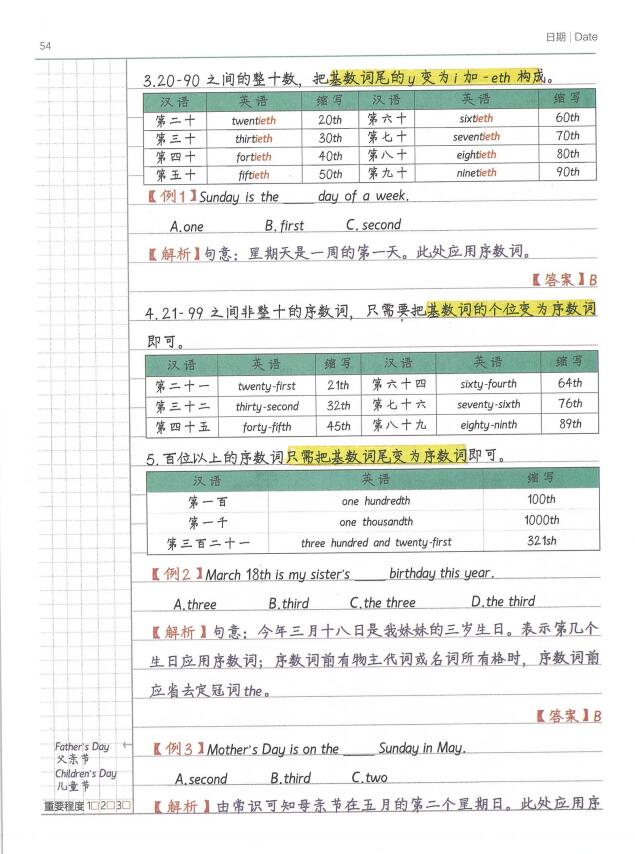 54
日期 | Date
3.20-90 之间的整十数，把基数词尾的 y 变为 i 加 -eth 构成。
汉语 英语 缩写 汉语 英语 缩写
第二十 twentieth 20th 第六十 sixtieth 60th
第三十 thirtieth 30th 第七十 seventieth 70th
第四十 fortieth 40th 第八十 eightieth 80th
第五十 fiftieth 50th 第九十 ninetieth 90th
【例1】Sunday is the ____ day of a week.
A.one B.first C.second
【解析】句意：星期天是一周的第一天。此处应用序数词。
【答案】B
4.21-99 之间非整十的序数词，只需要把基数词的个位变为序数词
即可。
汉语 英语 缩写 汉语 英语 缩写
第二十一 twenty-first 21th 第六十四 sixty-fourth 64th
第三十二 thirty-second 32th 第七十六 seventy-sixth 76th
第四十五 forty-fifth 45th 第八十九 eighty-ninth 89th
5.百位以上的序数词只需把基数词尾变为序数词即可。
汉语 英语 缩写
第一百 one hundredth 100th
第一千 one thousandth 1000th
第三百二十一 three hundred and twenty-first 321sh
【例2】March 18th is my sister's ____ birthday this year.
A.three B.third C.the three D.the third
【解析】句意：今年三月十八日是我妹妹的三岁生日。表示第几个
生日应用序数词；序数词前有物主代词或名词所有格时，序数词前
应省去定冠词the。
【答案】B
【例3】Mother's Day is on the ____ Sunday in May.
A.second B.third C.two
【解析】由常识可知母亲节在五月的第二个星期日。此处应用序
Father's Day ←
父亲节
Children's Day
儿童节
重要程度 1□2□3□